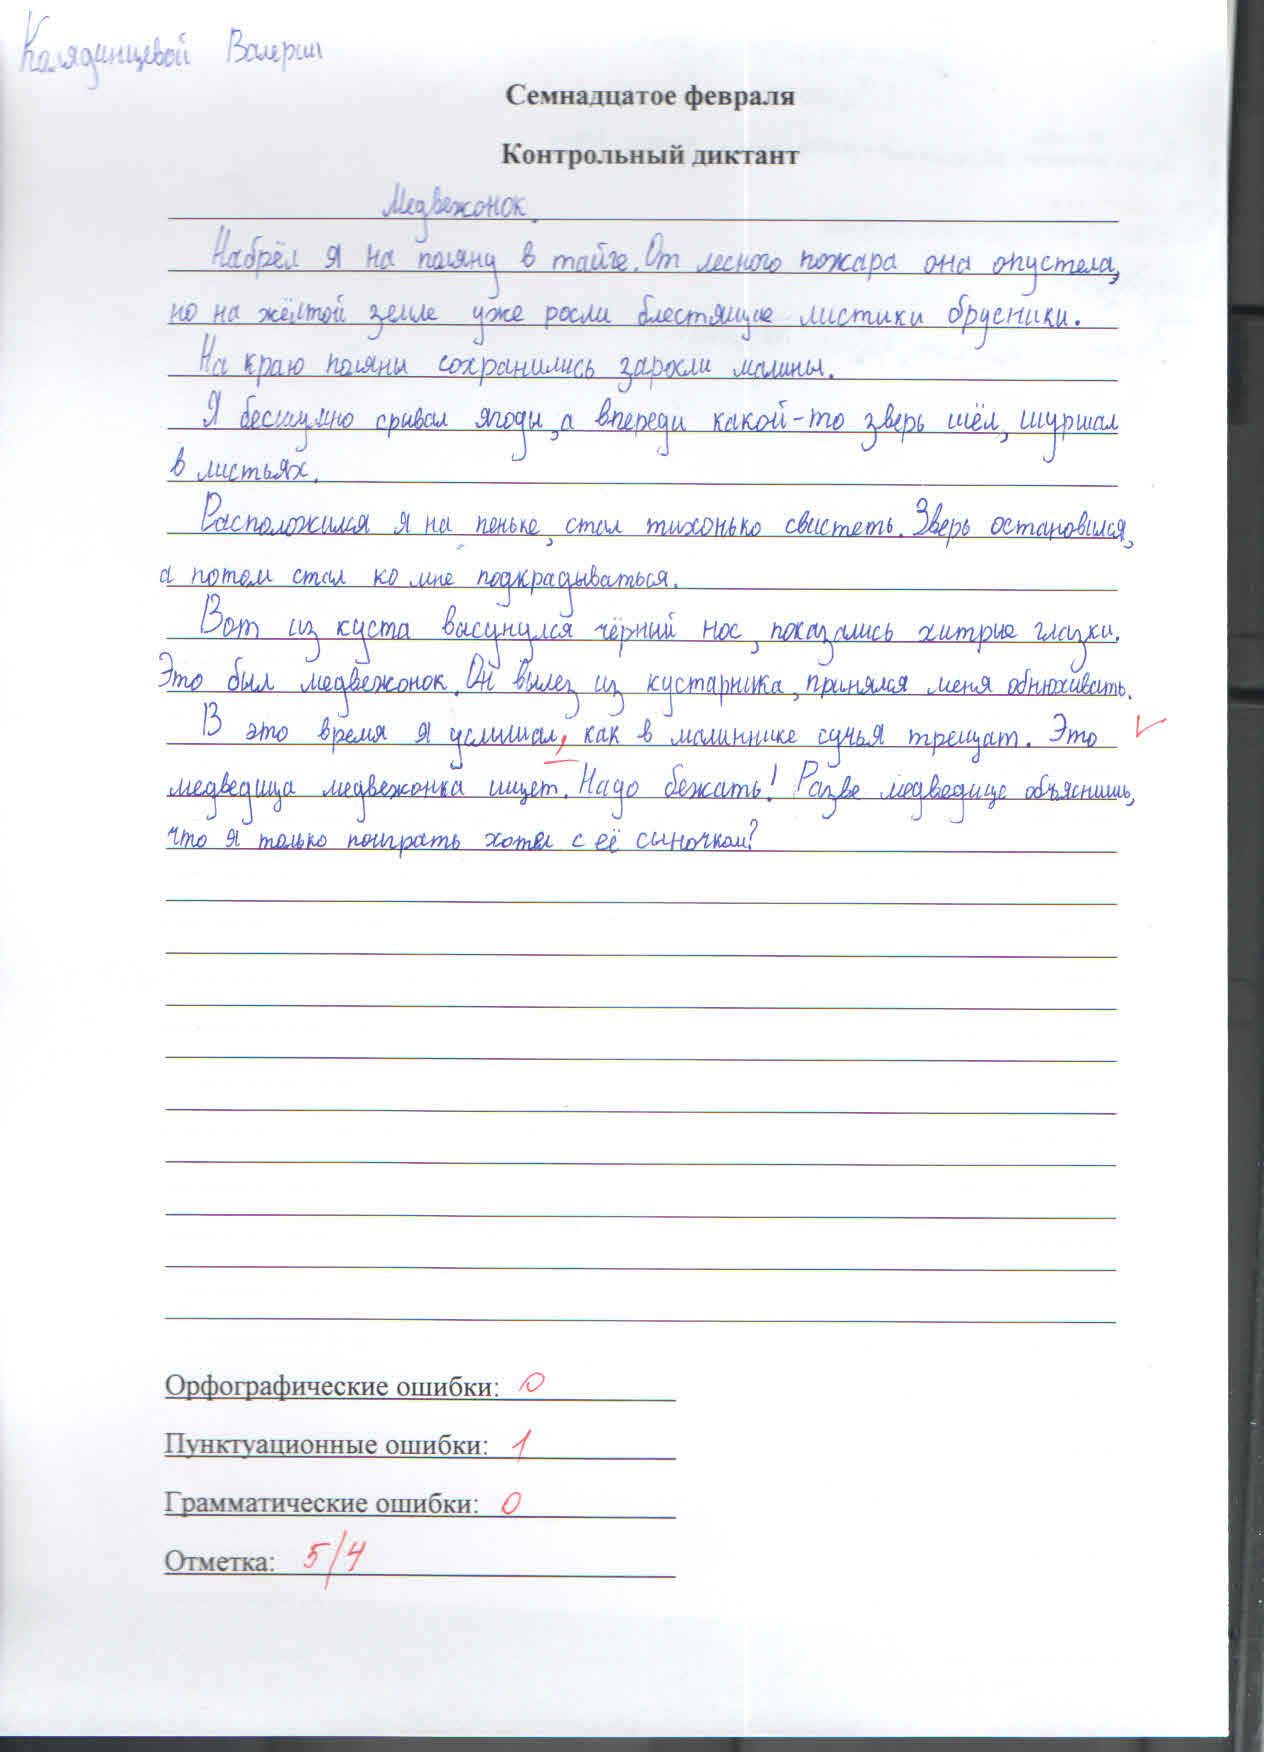 Калядинцевой Валерии
Семнадцатое февраля
Контрольный диктант
Медвежонок.
Набрёл я на поляну в тайге. От лесного пожара она опустела,
но на жёлтой земле уже росли блестящие листики брусники.
На краю поляны сохранились заросли малины.
Я бесшумно срывал ягоды, а впереди какой-то зверь шёл, шуршал
в листьях.
Расположился я на пеньке, стал тихонько свистеть. Зверь остановился,
а потом стал ко мне подкрадываться.
Вот из куста высунулся чёрный нос, показались хитрые глазки.
Это был медвежонок. Он вылез из кустарника, принялся меня обнюхивать.
В это время я услышал, как в малиннике сучья трещат. Это
медведица медвежонка ищет. Надо бежать! Разве медведице объяснишь,
что я только поиграть хотел с её сыночком?
Орфографические ошибки: 0
Пунктуационные ошибки: 1
Грамматические ошибки: 0
Отметка: 5/4